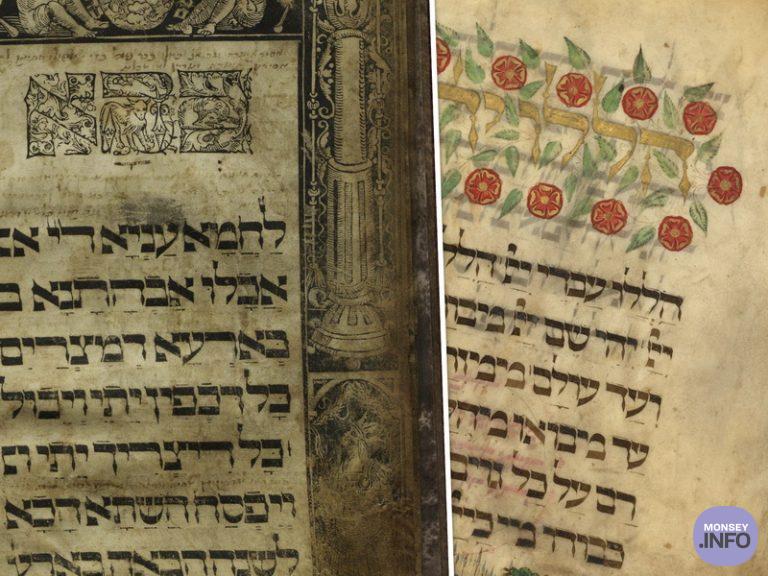 כהא
לַחְמָא עַנְיָא דִי
אכלו אבהתנא
בארעא דמצרים
כל דכפין ייתי וייכול
וכל דיצריך ייתי
ויפסח השתא הכא
לשנה הבאה בארע
הללויה
הללו עבדי יי הלל
יי יהי שם יי מבור
ועד עולם ממזר
עד מבואו מהל
רם על כל גוים
כבודו מי כיי
MONSEY
.INFO